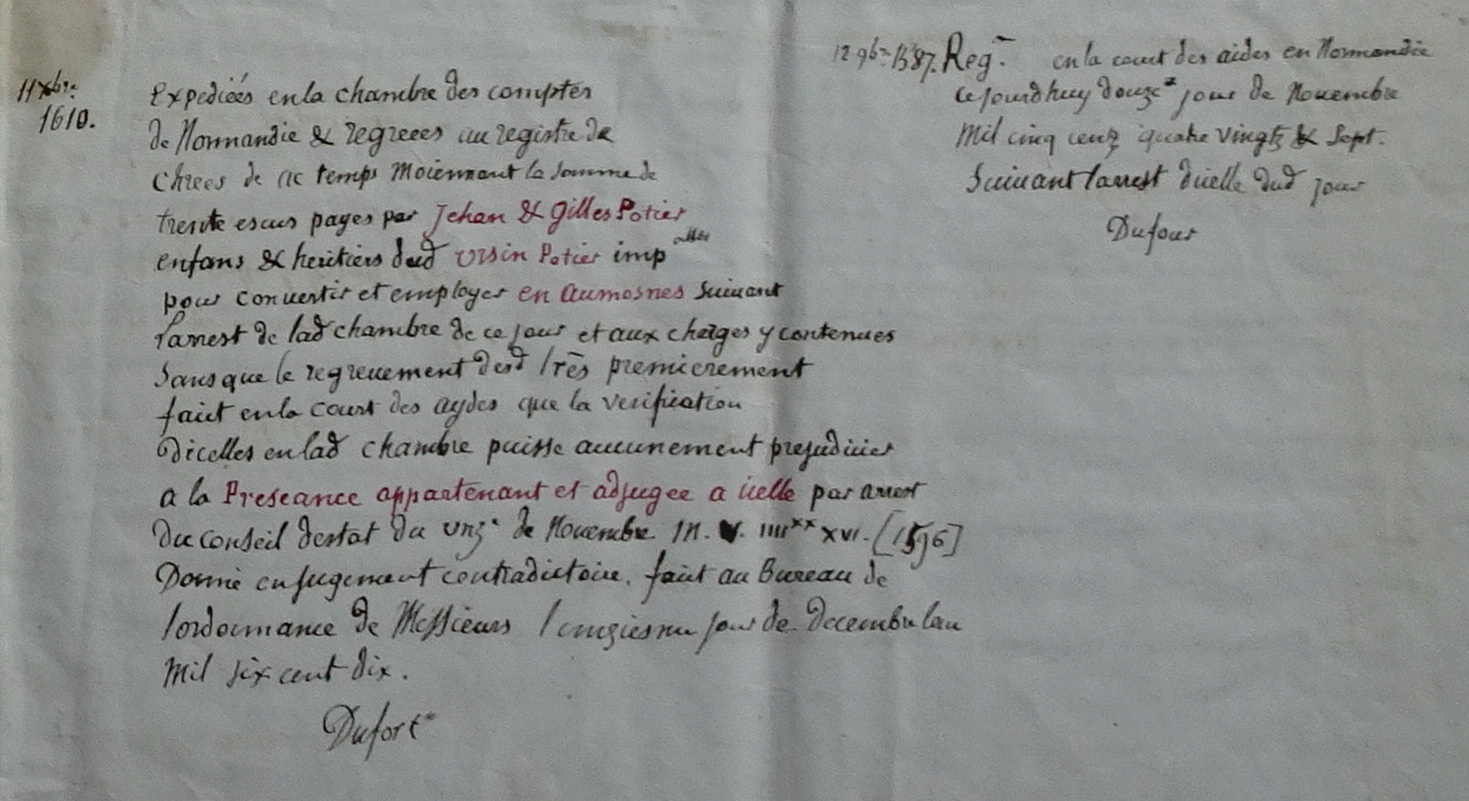 11 xbre
1610.
Expediées en la chambre des comptes
de Normandie & regrees au registre de
Chrees de ce temps Moiennant la somme de
trente escus payes par Jehan & Gilles Potier
enfans & heritiers dud Ursin Potier imp
pour convertir et employer en Aumosnes Suivant
l'arrest de lad chambre de ce jour et aux charges y contenues
Sans que le regreuement desd lrēs premierement
faict en la court des aydes que la verification
dicelles en lad chambre puisse aucunement prejudicier
a la Preseance appartenant et adjugee a icelle par arrest
du conseil destat du unze de Novembre M. V. IIIIxx XVI. [1596]
Donné en jugement contradictoire. faict au Bureau de
l'ordonnance de Messieurs l'onziesme jour de Decembre lan
Mil six cent dix.
Dufort
12 9bre 1587. Reg. en la court des aides en Normandie
Cejourdhuy douze jour de Novembre
Mil cinq centz quatre vingtz & Sept.
Suivant larrest dicelle dud jour
Dufour